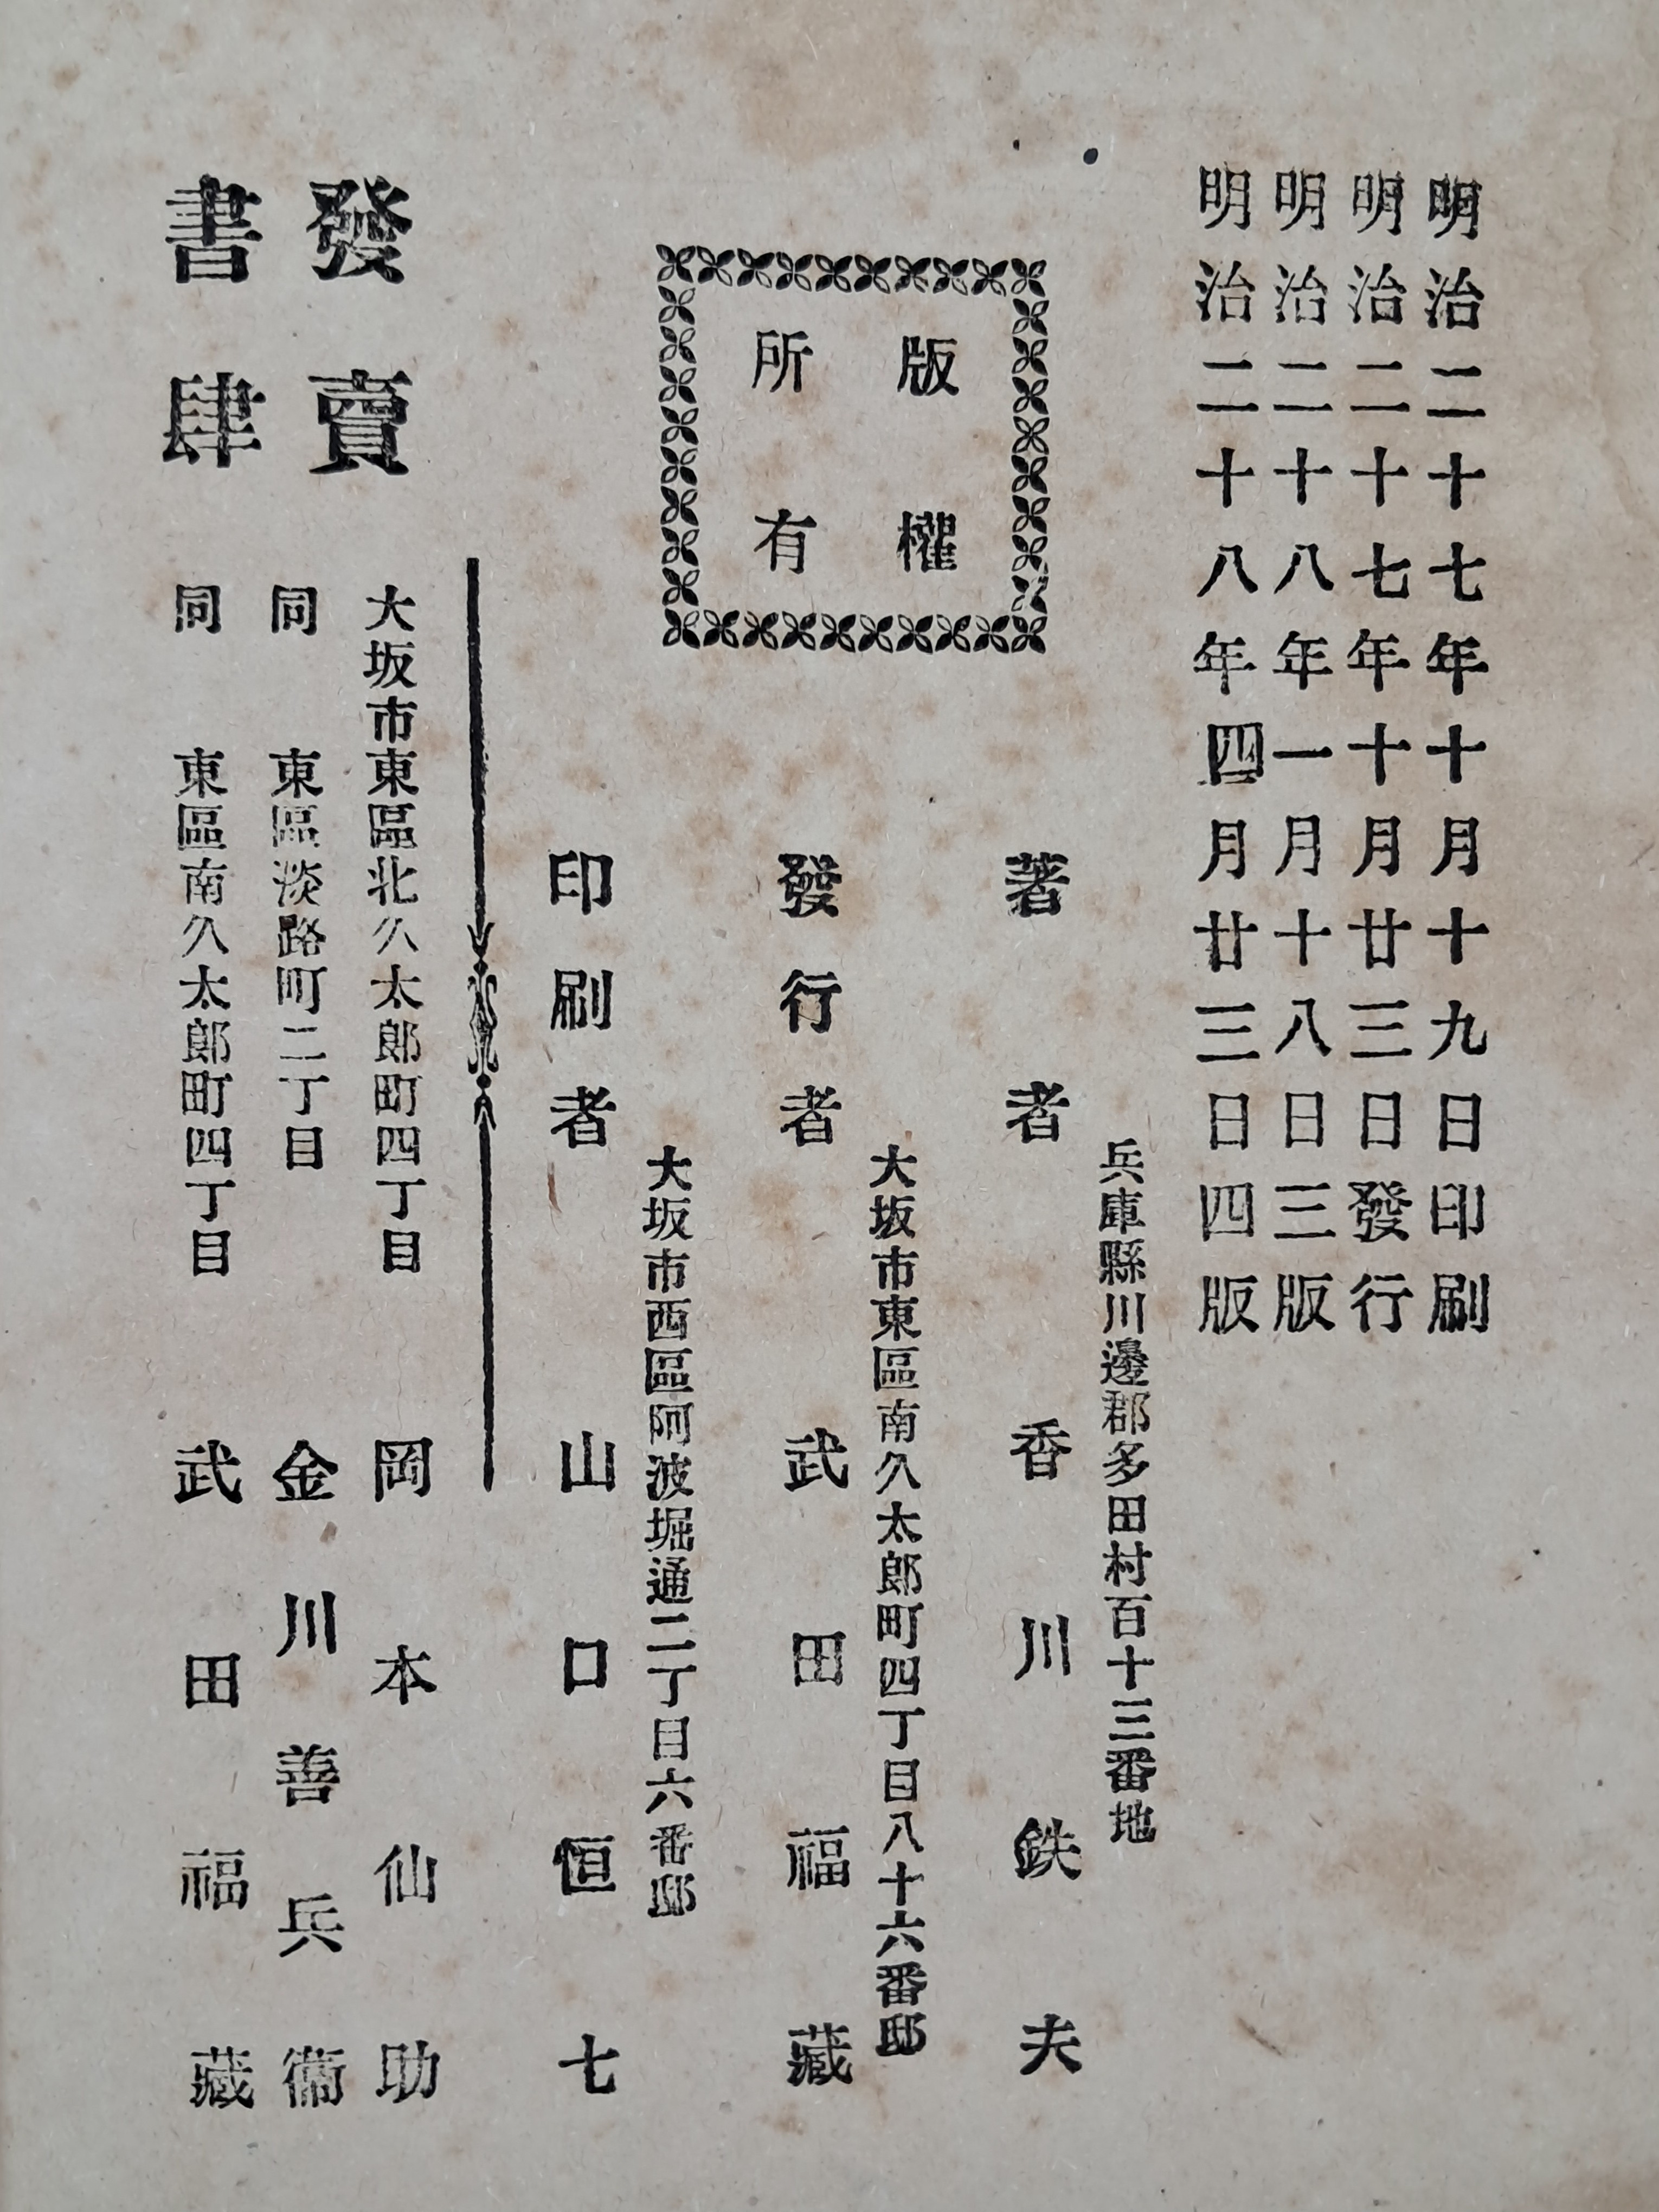 明治二十七年十月十九日印刷
明治二十七年十月廿三日發行
明治二十八年一月十八日三版
明治二十八年四月廿三日四版
版權
所有
兵庫縣川邊郡多田村百十三番地
著者 香川鉄夫
大坂市東區南久太郎町四丁目八十六番邸
發行者 武田福藏
大坂市西區阿波堀通二丁目六番邸
印刷者 山口恒七
發賣
書肆
大坂市東區北久太郎町四丁目 岡本仙助
同 東區淡路町二丁目 金川善兵衞
同 東區南久太郎町四丁目 武田福藏